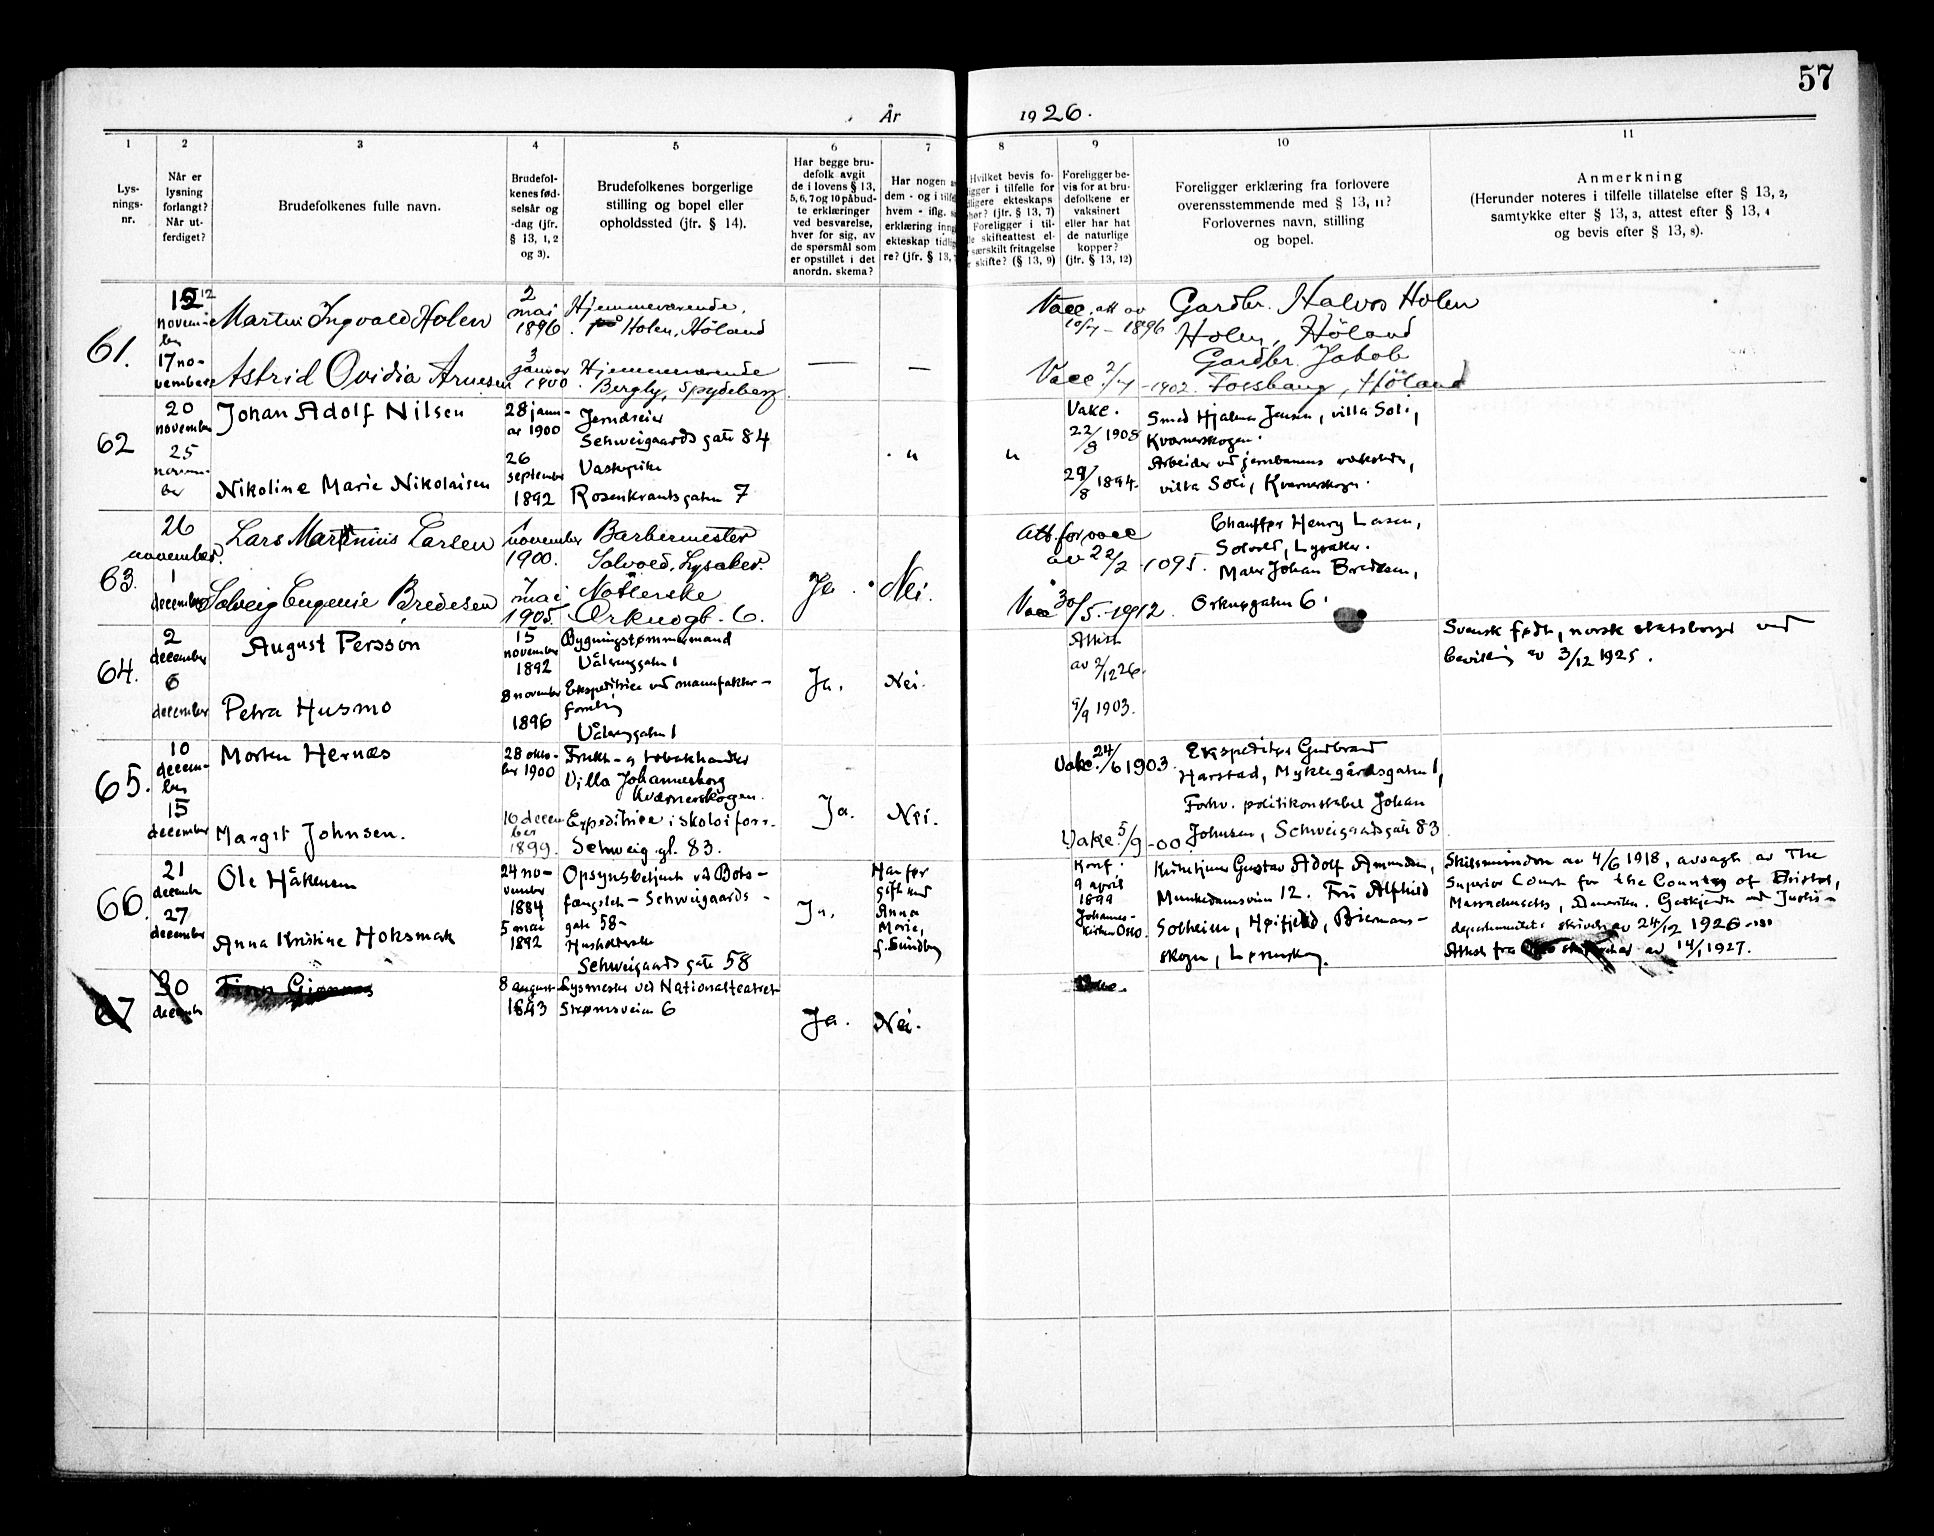 57
År 1926.
1
Lys-
nings-
nr.
2
Når er
lysning
forlangt?
Når ut-
ferdiget?
3
Brudefolkenes fulle navn.
4
Brudefol-
kenes fød-
selsår og
-dag (jfr.
§ 13, 1, 2
og 3).
5
Brudefolkenes borgerlige
stilling og bopel eller
opholdssted (jfr. § 14).
6
Har begge bru-
defolk avgit
de i lovens § 13,
5, 6, 7 og 10 påbud-
te erklæringer
ved besvarelse,
hver for sig, av
de spørsmål som
er opstillet i det
anordn. skema?
7
Har nogen
dem - og i tilf
hvem - iflg.
erklæring inng
ekteskap tidli
re? (jfr. § 13,
8
Hvilket bevis fo-
ligger i tilfelle for
dligere ekteskaps
hør? (jfr. § 13, 7)
Foreligger i til-
le skifteattest el-
særskilt fritagelse
skifte? (§ 13, 9)
9
Foreligger be-
vis for at bru-
defolkene er
vaksinert
eller har hat
de naturlige
kopper?
(jfr. § 13, 12)
10
Foreligger erklæring fra forlovere
overensstemmende med § 13, 11?
Forlovernes navn, stilling
og bopel.
11
Anmerkning
(Herunder noteres i tilfelle tillatelse efter § 13, 2,
samtykke efter § 13, 3, attest efter § 13, 4
og bevis efter § 13, 8).
61.
12
novem-
ber
17 no-
vember
Martin Ingvald Holen
Astrid Ovidia Arnesen
2
mai
1896
3
januar
1900
Hjemmeværende,
på Holen, Høland
Hjemmeværende
Bergly, Spydeberg
—
—
Vacc. att av
10/7 - 1896
Vacc 2/7 - 1902.
Gardbr. Halvor Holen
Holen, Høland
Gardbr. Jakob
Fossbaug, Høland
62
20
november
25
novem-
ber
Johan Adolf Nilsen
Nikoline Marie Nikolaisen
28 janu-
ar 1900
26
september
1892
Jerndreier
Schweigaards gate 84
Vaskepike
Rosenkrantsgaten 7
"
"
Vakc.
22/8 1905
29/8 1894.
Smed Hjalmar Jensen, villa Soli,
Kværnerskogen.
Arbeider ved jernbanens verksteder,
villa Soli, Kværnerskogen.
63.
26
november.
1
december
Lars Martinius Larsen
Solveig Eugenie Bredesen
1
november
1900.
7
mai
1905.
Barbermester
Solvold, Lysaker.
Nøtlerske
Orknøgt. 6.
Ja.
Nei.
Att. for vacc
av 22/2 - 1095.
Vacc 30/5 - 1912.
Chauffør Henry Larsen,
Solvold, Lysaker.
Maler Johan Bredesen,
Orknøgaten 6.
64.
2
december
6
december
August Persson
Petra Husmo
15
november
1892
8 november
1896
Bygningstømmermand
Vålerenggaten 1
Ekspeditrice ved manufaktur-
forretning
Vålerenggaten 1
Ja.
Nei.
Attest
av 2/12 26.
9/9 1903.
Svensk født, norsk statsborger ved
bevilling av 3/12 1925.
65.
10
decem-
ber
15
december
Morten Hernæs
Margit Johnsen.
28 okto-
ber 1900
10 decem
ber
1899.
Frukt- og tobakshandler
Villa Johannesborg
Kværnerskogen.
Expeditrice i skotøiforr.
Schweig. gt. 83.
Ja.
Nei.
Vakc. 24/6 1903.
Vakc. 5/9 -00
Ekspeditør Gudbrand
Harstad, Myklegårdsgaten 1,
Forhv. politikonstabel Johan
Johnsen, Schweigaardsgate 83
66.
21
december
27
december
Ole Håkensen
Anna Kristine Hoksmark
24 no-
vember
1884
5 mai
1892
Opsynsbetjent ved Bots-
fængslet - Schweigaards-
gate 58-
Husholderske
Schweigaards gate 58
Ja.
Har før
gift med
Anna
Marie,
f. Sundby
Konf.
9 april
1899
Johannes-
kirken Oslo.
Kirketjener Gustav Adolf Amundsen,
Munkedamsveien 12. Fru Alfhild
Solheim, Høifjeld, Biermans-
skogen, Lørenskog.
Skilsmissedom av 4/6 1918, avsagt av The
Superior Court for the County of Bristol,
Massachusetts, Amerika. Godkjendt ved Justis-
departementets skrivelse av 24/12 1926
Attest fra Oslo skifteret av 14/1 1927.
67
30
december
Finn Gjønnes
8 august
1893
Lysmester ved Nationalteatret
Strømsveien 6
Ja.
Nei.